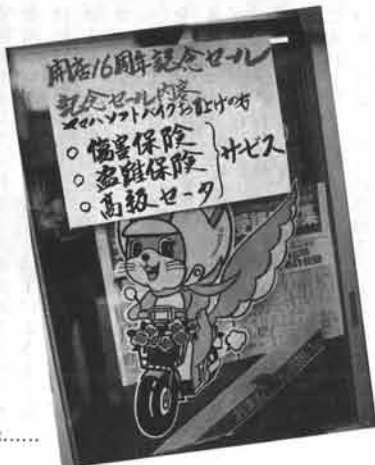 開店16周年記念セール
記念セール内容
ヤマハソフトバイクお買上げの方
○ 傷害保険
○ 盗難保険
○ 高級セータ
サビス
……